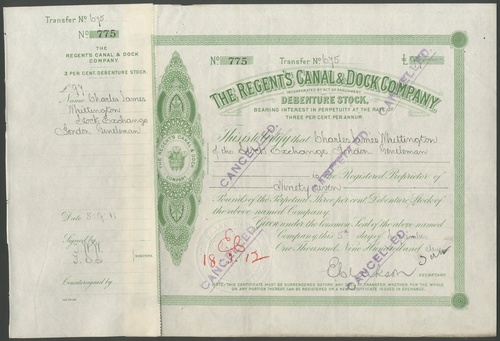 Transfer No. 675
No. 775
THE
REGENT'S CANAL & DOCK
COMPANY.
3 PER CENT. DEBENTURE STOCK.
£ 97
Name Charles James
Whittington
Stock Exchange
London Gentleman
Date
Signed by
Countersigned by
No. 775 Transfer No. 675 £
THE REGENT'S CANAL & DOCK COMPANY.
INCORPORATED BY ACT OF PARLIAMENT
DEBENTURE STOCK,
BEARING INTEREST IN PERPETUITY AT THE RATE OF
THREE PER CENT PER ANNUM.
This is to Certify that Charles James Whittington
of the Stock Exchange London Gentleman
is the Registered Proprietor of
Ninety seven
Pounds of the Perpetual Three per cent Debenture Stock of
the above named Company.
Given under the Common Seal of the above named
Company, this 5th day of
One Thousand, Nine Hundred and eleven
SECRETARY
NOTE: THIS CERTIFICATE MUST BE SURRENDERED BEFORE ANY DEED OF TRANSFER, WHETHER FOR THE WHOLE
OR ANY PORTION THEREOF, CAN BE REGISTERED OR A NEW CERTIFICATE ISSUED IN EXCHANGE.
THE REGENT'S CANAL & DOCK
COMPANY
CANCELLED.
CANCELLED.
CANCELLED.
CANCELLED.
CANCELLED.